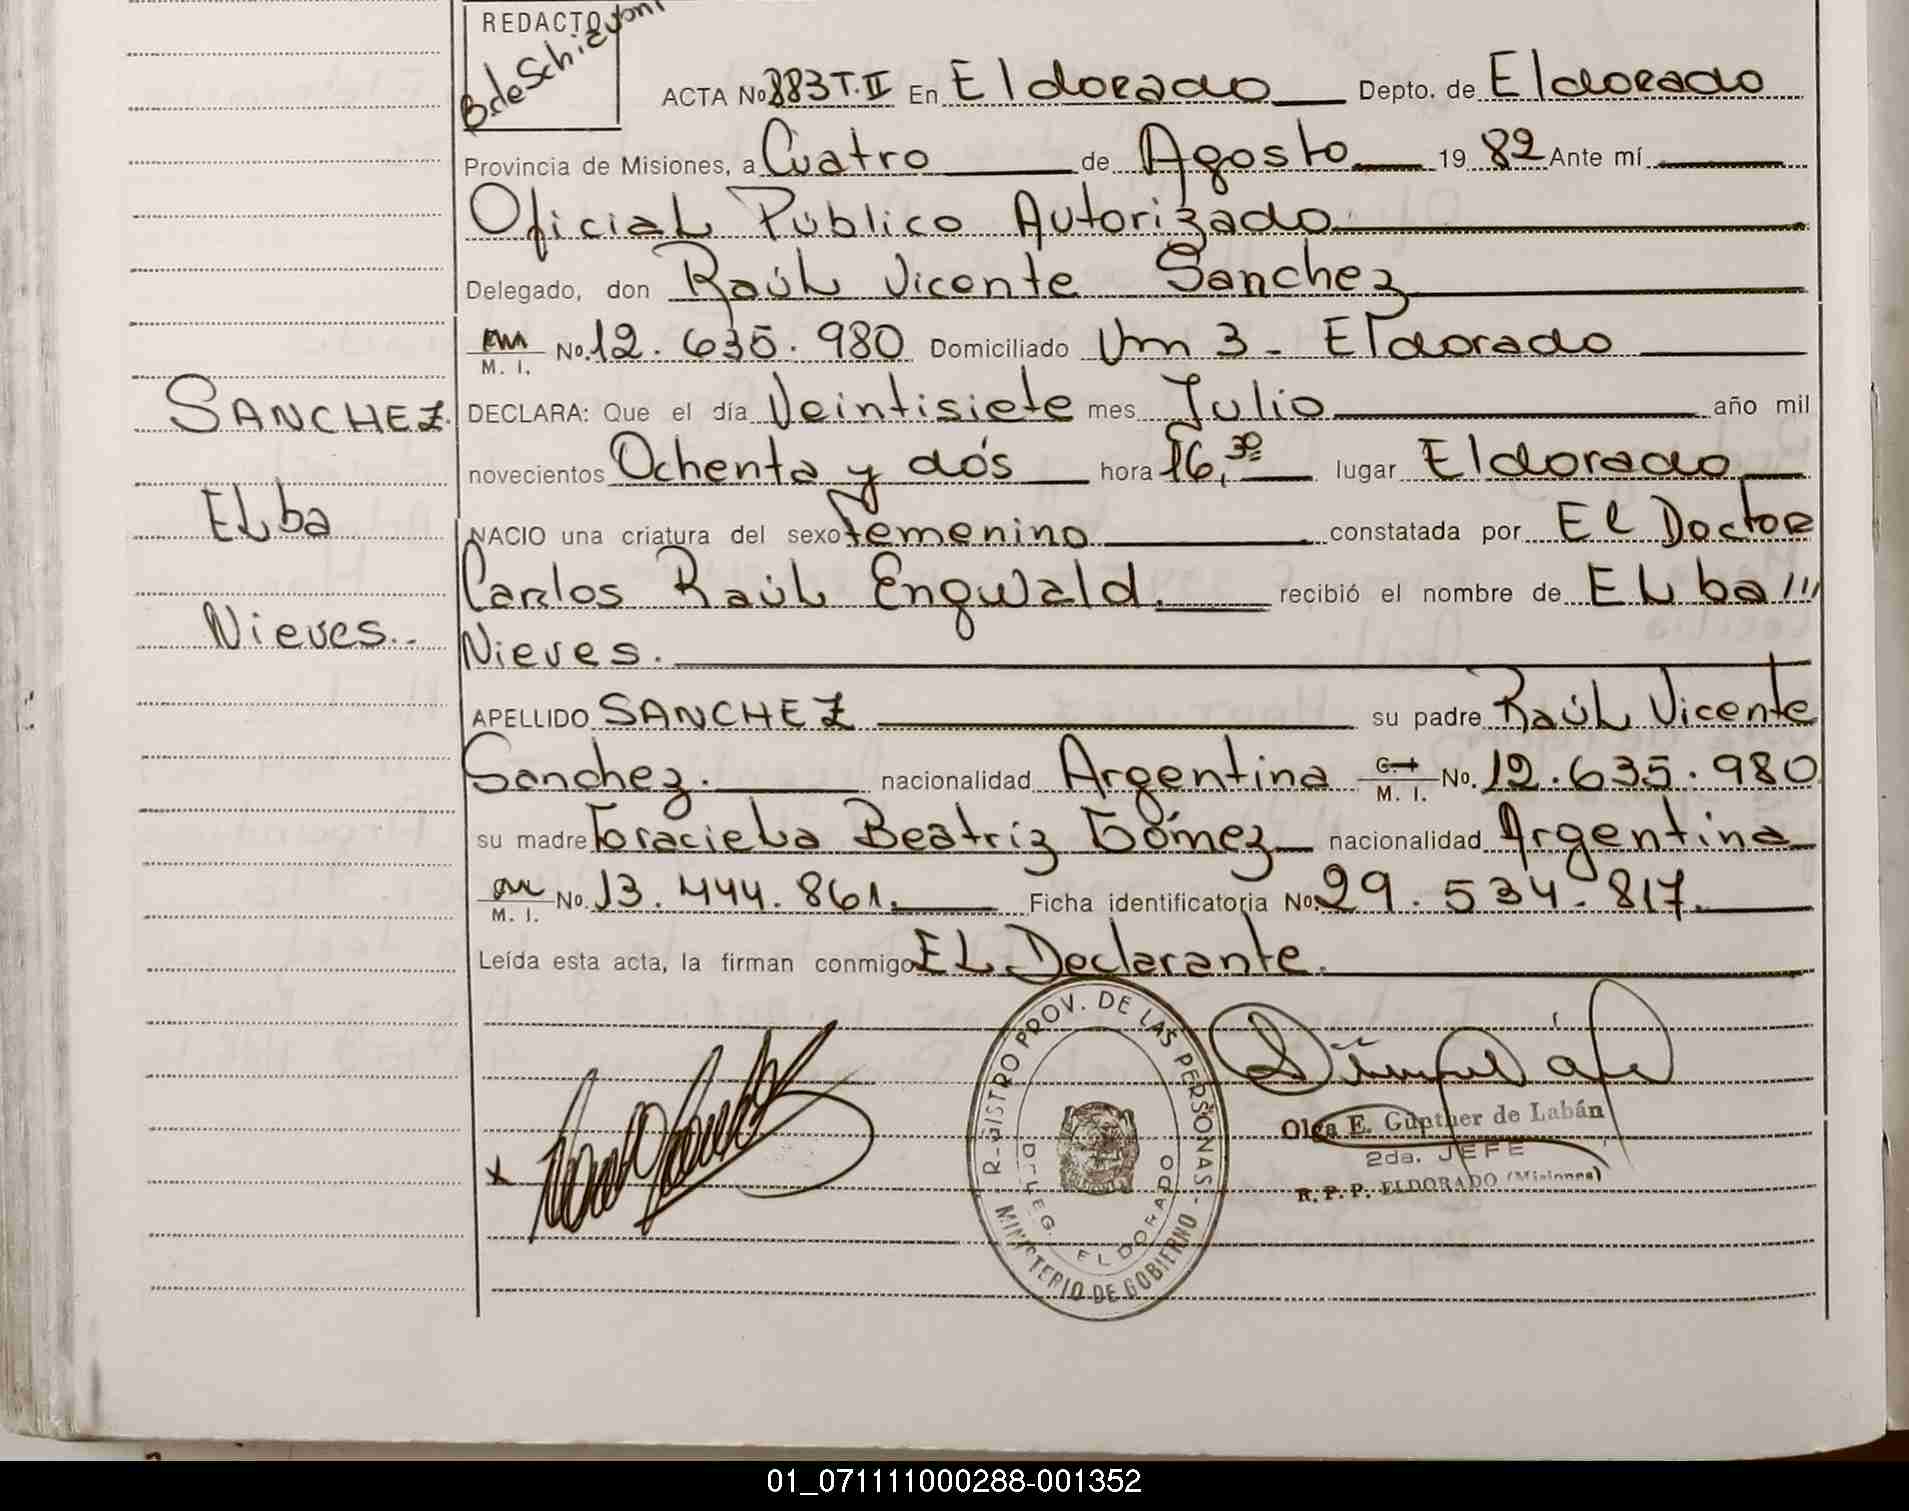 REDACTO
B. de Schiavoni
ACTA No 883 T. II En Eldorado Depto. de Eldorado
Provincia de Misiones, a Cuatro de Agosto 19 82 Ante mí
Oficial Público Autorizado
Delegado, don Raúl Vicente Sanchez
M. I. No. 12.635.980 Domiciliado Km 3 - Eldorado
DECLARA: Que el día Veintisiete mes Julio año mil
novecientos Ochenta y dós hora 16,30 lugar Eldorado
NACIO una criatura del sexo Femenino constatada por El Doctor
Carlos Raúl Engwald. recibió el nombre de Elba
Nieves.
APELLIDO SANCHEZ su padre Raúl Vicente
Sanchez. nacionalidad Argentina C. I. M. I. No. 12.635.980
su madre Graciela Beatriz Gómez nacionalidad Argentina
M. I. No. 13.444.861. Ficha identificatoria No. 29.534.817.
Leída esta acta, la firman conmigo El Declarante.
SANCHEZ.
Elba
Nieves..
REGISTRO PROV. DE LAS PERSONAS - MINISTERIO DE GOBIERNO -
DELEG. ELDORADO
Olga E. Günther de Labán
2da. JEFE
R. P. P. ELDORADO (Misiones)
01_071111000288-001352